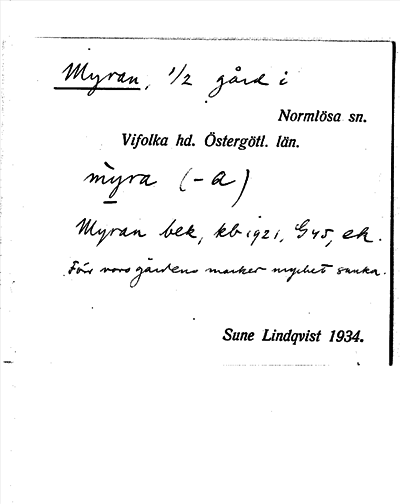 Myran, 1/2 gård i
Normlösa sn.
Vifolka hd. Östergötl. län.
my̱ra (-a)
Myran bek, kb 1921, G 45, ek.
Förr voro gårdens marker mycket sanka.
Sune Lindqvist 1934.